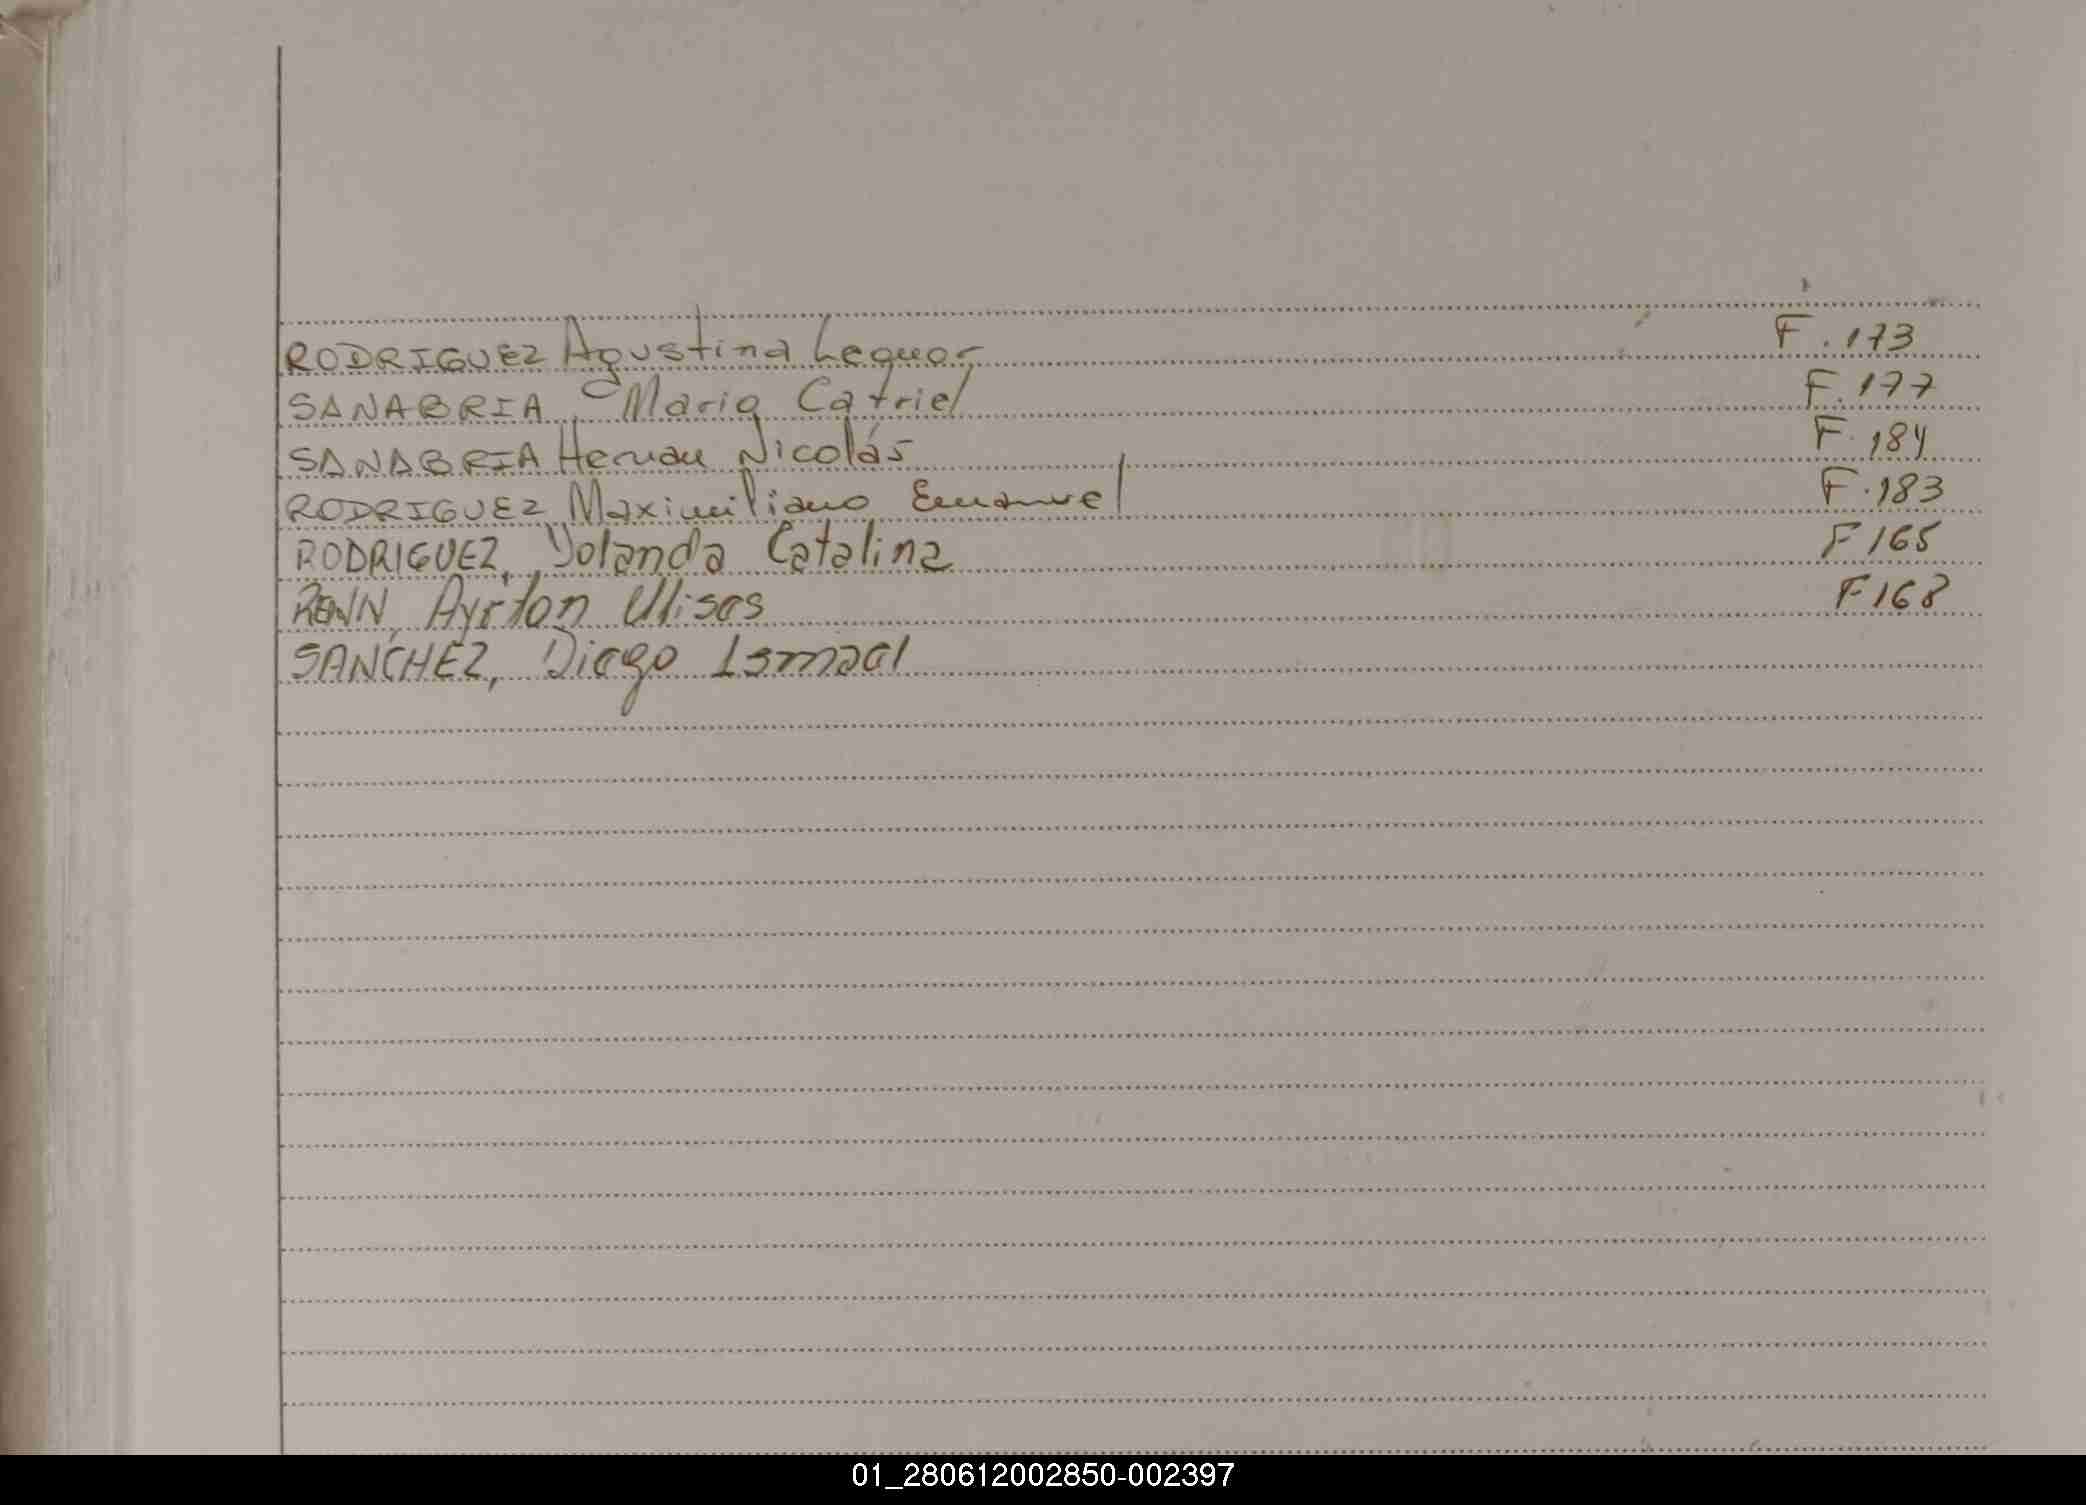 RODRIGUEZ Agustina Lequor F. 173
SANABRIA, Mario Catriel F. 177
SANABRIA Hernan Nicolás F. 184
RODRIGUEZ Maximiliano Emanuel F. 183
RODRIGUEZ, Yolanda Catalina F 165
RENN, Ayrton Ulises F 168
SANCHEZ, Diego Ismael
01_280612002850-002397